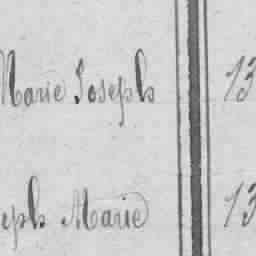 Marie Joseph 13
eph Marie 13